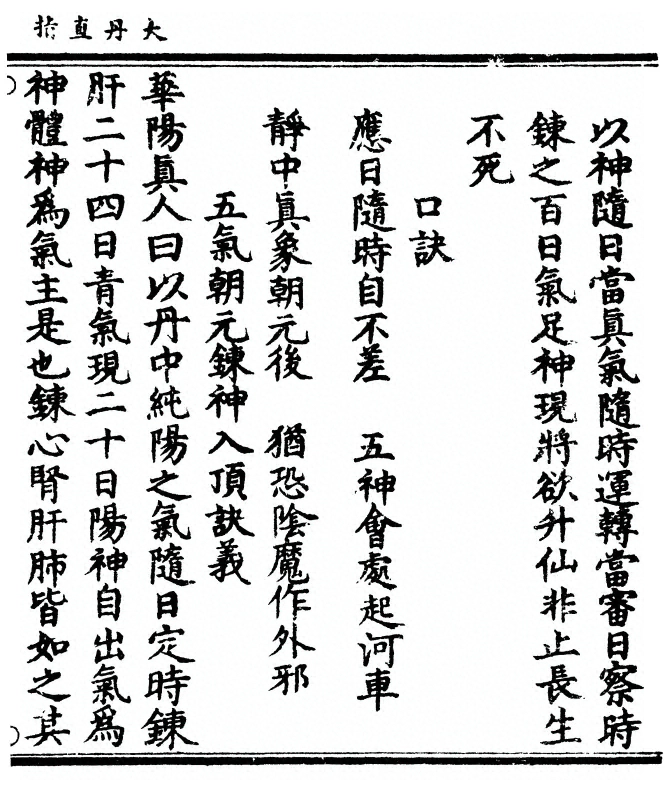 大丹直指
以神隨日當眞氣隨時運轉當審日察時
鍊之百日氣足神現將欲升仙非止長生
不死
口訣
應日隨時自不差　五神會處起河車
靜中眞象朝元後　猶恐陰魔作外邪
五氣朝元鍊神入頂訣義
華陽眞人曰以丹中純陽之氣隨日定時鍊
肝二十四日青氣現二十日陽神自出氣爲
神體神爲氣主是也鍊心腎肝肺皆如之其